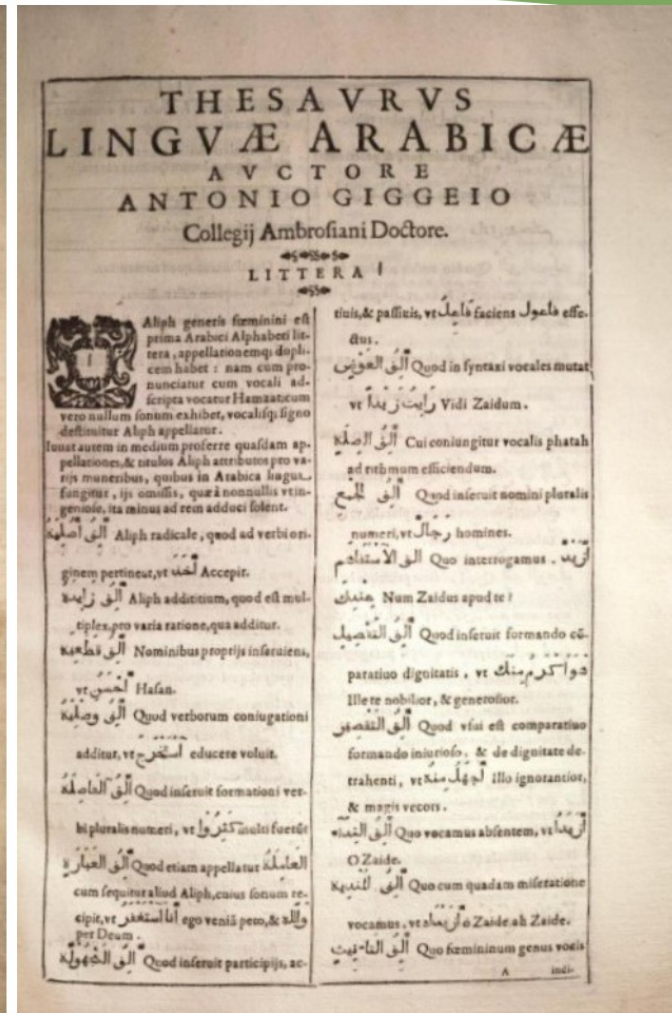 THESAVRVS
LINGVÆ ARABICÆ
AVCTORE
ANTONIO GIGGEIO
Collegij Ambrosiani Doctore.
LITTERA ا
ا Aliph generis fœminini est
prima Arabici Alphabeti lit-
tera, appellationemq; dupli-
cem habet: nam cum pro-
nunciatur cum vocali ad-
scripta vocatur Hamzaticum
vero nullum sonum exhibet, vocalisq; signo
destituitur Aliph appellatur.
Iuuat autem in medium proferre quasdam ap-
pellationes, & titulos Aliph attributos pro va-
rijs muneribus, quibus in Arabica lingua
fungitur, ijs omissis, quæ à nonnullis vt in-
geniose, ita minus ad rem adduci solent.
ألف أصلية Aliph radicale, quod ad verbi ori-
ginem pertinet, vt أخذ Accepit.
ألف زايدة Aliph addititium, quod est mul-
tiplex, pro varia ratione, qua additur.
ألف قطعية Nominibus proprijs inseruiens,
vt أحسن Hasan.
ألف وصلية Quod verborum coniugationi
additur, vt استخرج educere voluit.
ألف الفاصلة Quod inseruit formationi ver-
bi pluralis numeri, vt كثروا multi fuerũt
ألف العبارة Quod etiam appellatur العاملة
cum sequitur aliud Aliph, cuius sonum re-
cipit, vt أنا أستغفر ego veniã peto, & والله
per Deum.
ألف Quod inseruit participijs, ac-
tiuis, & passiuis, vt فاعل faciens فاعول effe-
ctus.
ألف العوض Quod in syntaxi vocales mutat
vt رايت زيدا Vidi Zaidum.
ألف الصلة Cui coniungitur vocalis phatah
ad rithmum efficiendum.
ألف الجمع Quod inseruit nomini pluralis
numeri, vt رجال homines.
ألف الاستفهام Quo interrogamus. أزيد
عندك Num Zaidus apud te?
ألف التفضيل Quod inseruit formando cõ-
paratiuo dignitatis, vt هو أكرم منك
Ille te nobilior, & generosior.
ألف التقصير Quod vsui est comparatiuo
formando iniurioso, & de dignitate de-
trahenti, vt أجهل منه Illo ignorantior,
& magis vecors.
ألف النداء Quo vocamus absentem, vt أزيد
O Zaide.
ألف الندبة Quo cum quadam miseratione
vocamus, vt ò Zaide ah Zaide.
ألف التانيث Quo fœmininum genus vocis
A indi-